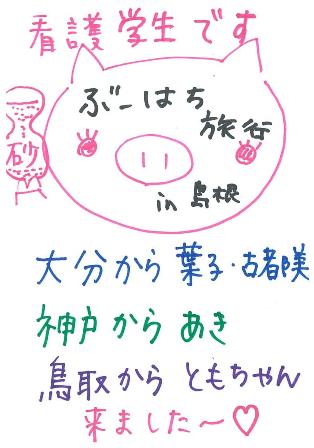 看護学生です
ぶーはち
旅行
in 島根
砂
大分から 葉子・古都美
神戸から あき
鳥取から ともちゃん
来ました〜♡